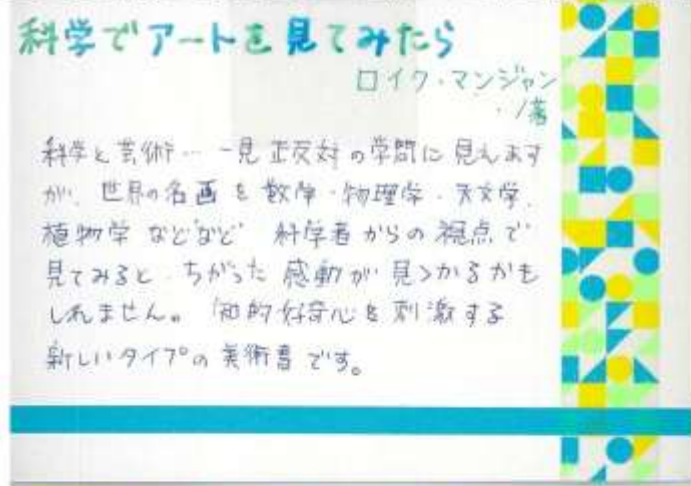 科学でアートを見てみたら
ロイク・マンジャン
/著
科学と芸術… 一見 正反対の学問に見えます
が、世界の名画を数学・物理学・天文学、
植物学などなど 科学者からの視点で
見てみると、ちがった感動が見つかるかも
しれません。知的好奇心を刺激する
新しいタイプの美術書です。